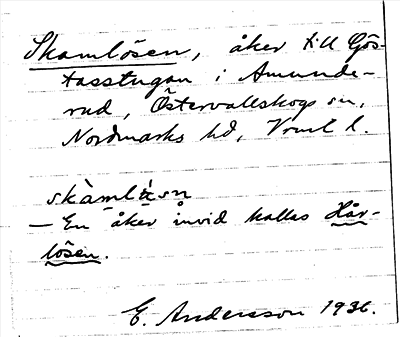 Skamlösen, åker till Gös-
tasstugan i Amunde-
rud, Östervallskogs sn,
Nordmarks hd, Vrml l.
skàmlǜsn
– En åker invid kallas Hår-
lösen.
E. Andersson 1936.